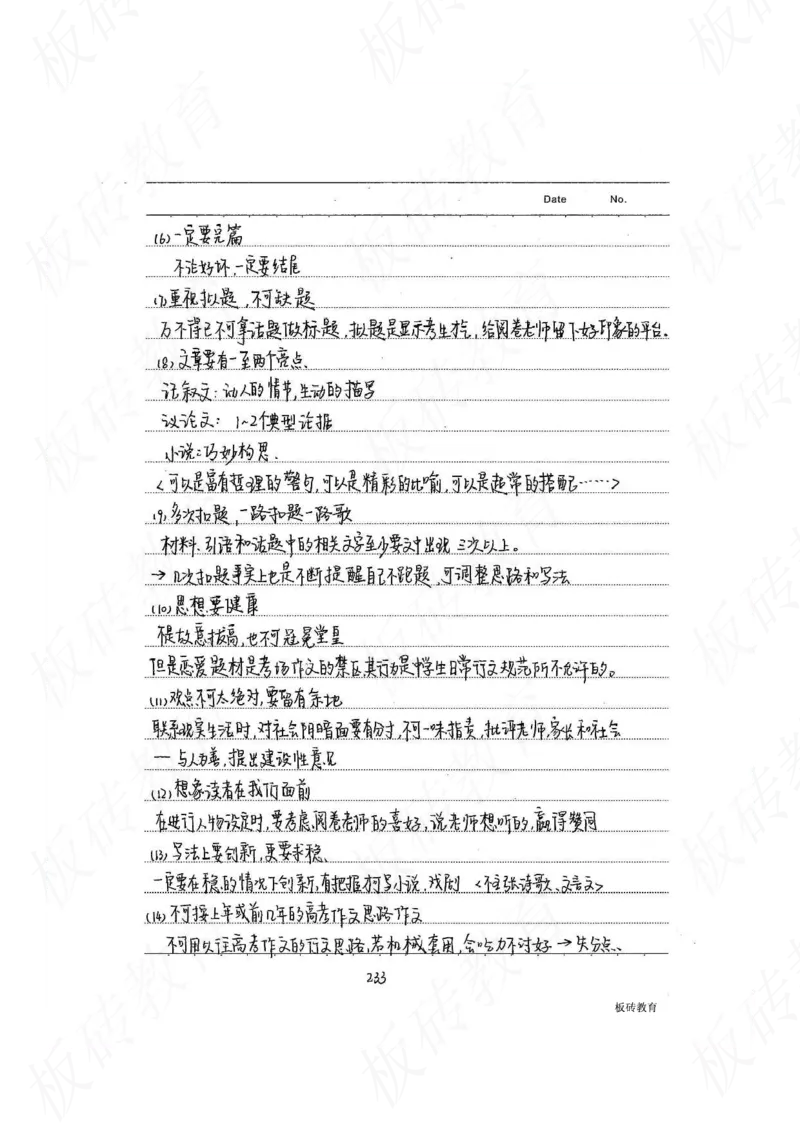 Date No.
(6)一定要完篇
不论好坏,一定要结尾
(7)重视拟题,不可缺题
万不得已不可拿话题做标题,拟题是显示考生才气,给阅卷老师留下好印象的平台。
(8)文章要有一至两个亮点、
记叙文:动人的情节,生动的描写
议论文: 1~2个典型论据
小说:巧妙构思.
<可以是富有哲理的警句,可以是精彩的比喻,可以是超常的搭配……>
(9)多次扣题,一路扣题一路歌
材料、引语和话题中的相关文字至少要文中出现 三次以上。
→ 几次扣题事实上也是不断提醒自己不跑题,可调整思路和写法
(10)思想要健康
不是故意拔高,也不可冠冕堂皇
但是恋爱题材是考场作文的禁区,其行为是中学生日常行文规范所不允许的。
(11)观点不可太绝对,要留有余地
联系现实生活时,对社会阴暗面要有分寸,不可一味指责,批评老师,家长和社会
— 与人为善,提出建设性意见
(12)想象读者在我们面前
在进行人物设定时,要考虑阅卷老师的喜好,说老师想听的,赢得赞同
(13)写法上要创新,更要求稳、
一定要在稳的情况下创新,有把握才写小说、戏剧 <不主张诗歌、文言文>
(14)不可按上年或前几年的高考作文思路作文
不可用以往高考作文的行文思路,若机械套用,会吃力不讨好 → 失分点、
233
板砖教育